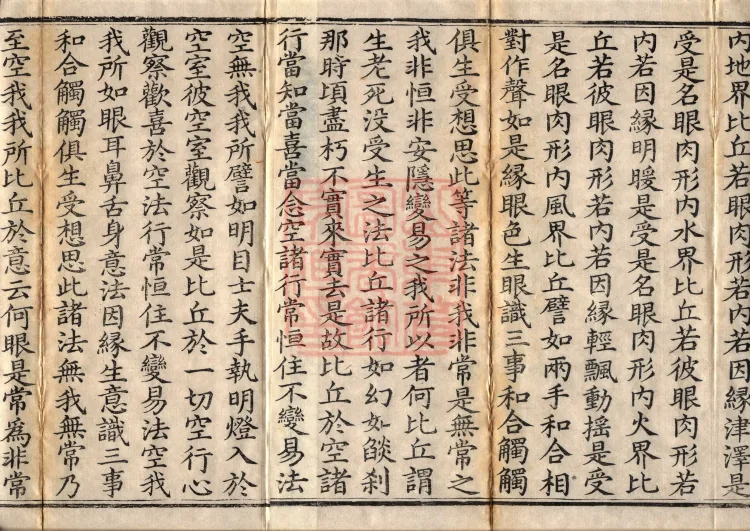 内地界比丘若眼肉形若内若因縁津澤是
受是名眼肉形内水界比丘若彼眼肉形若
内若因縁明暖是受是名眼肉形内火界比
丘若彼眼肉形若内若因縁輕飄動摇是受
是名眼肉形内風界比丘譬如兩手和合相
對作聲如是縁眼色生眼識三事和合觸觸
俱生受想思此等諸法非我非常是無常之
我非恒非安隱變易之我所以者何比丘謂
生老死没受生之法比丘諸行如幻如燄刹
那時頃盡朽不實來實去是故比丘於空諸
行當知當喜當念空諸行常恒住不變易法
空無我我所譬如明目士夫手執明燈入於
空室彼空室觀察如是比丘於一切空行心
觀察歡喜於空法行常恒住不變易法空我
我所如眼耳鼻舌身意法因緣生意識三事
和合觸觸俱生受想思此諸法無我無常乃
至空我我所比丘於意云何眼是常爲非常